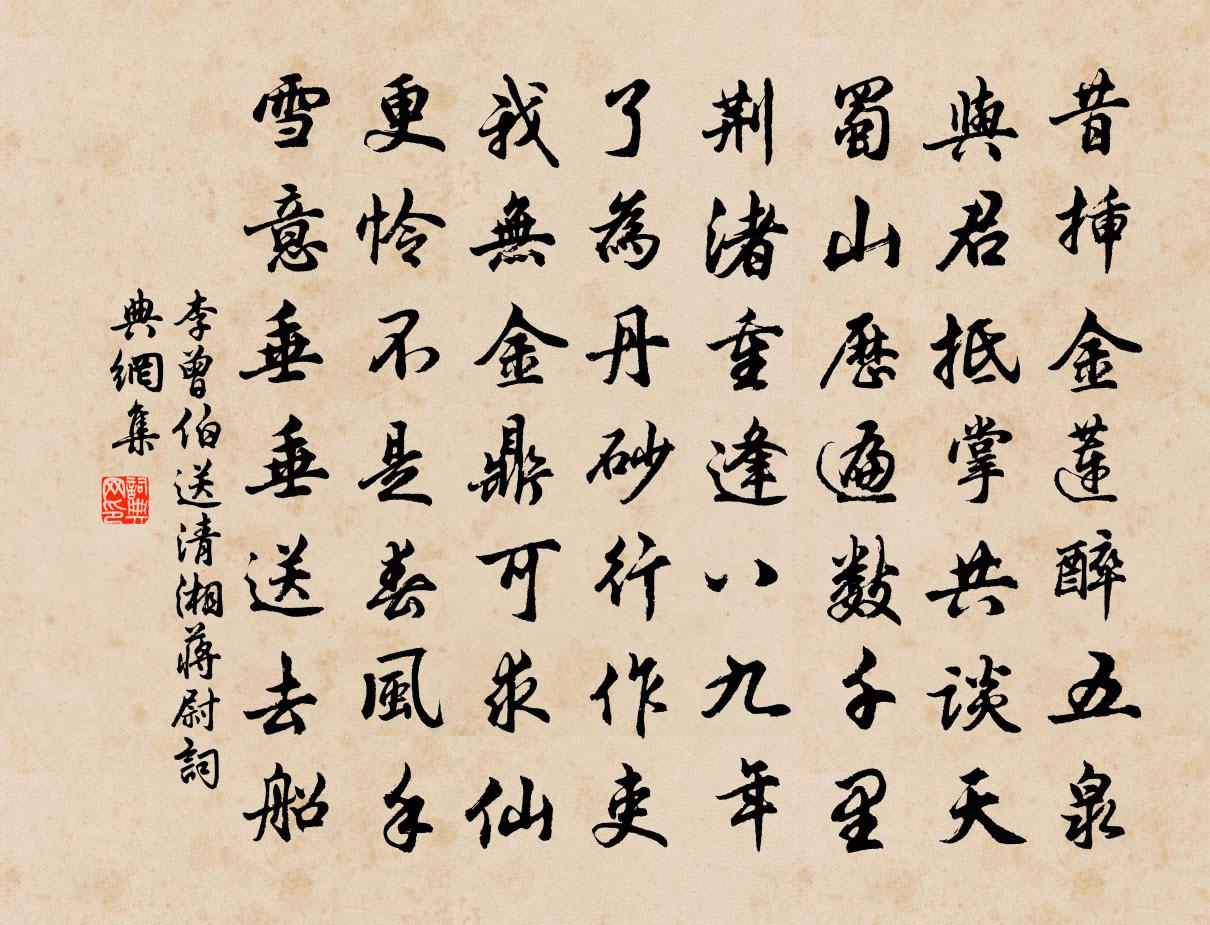 昔揷金蓮醉五泉
與君抵掌共談天
蜀山歷遍數千里
荆渚重逢八九年
了為丹砂行作吏
我無金鼎可求仙
更憐不是春風手
雪意垂垂送去船
李曾伯送清湘蔣尉詞
典網集
詞典网印